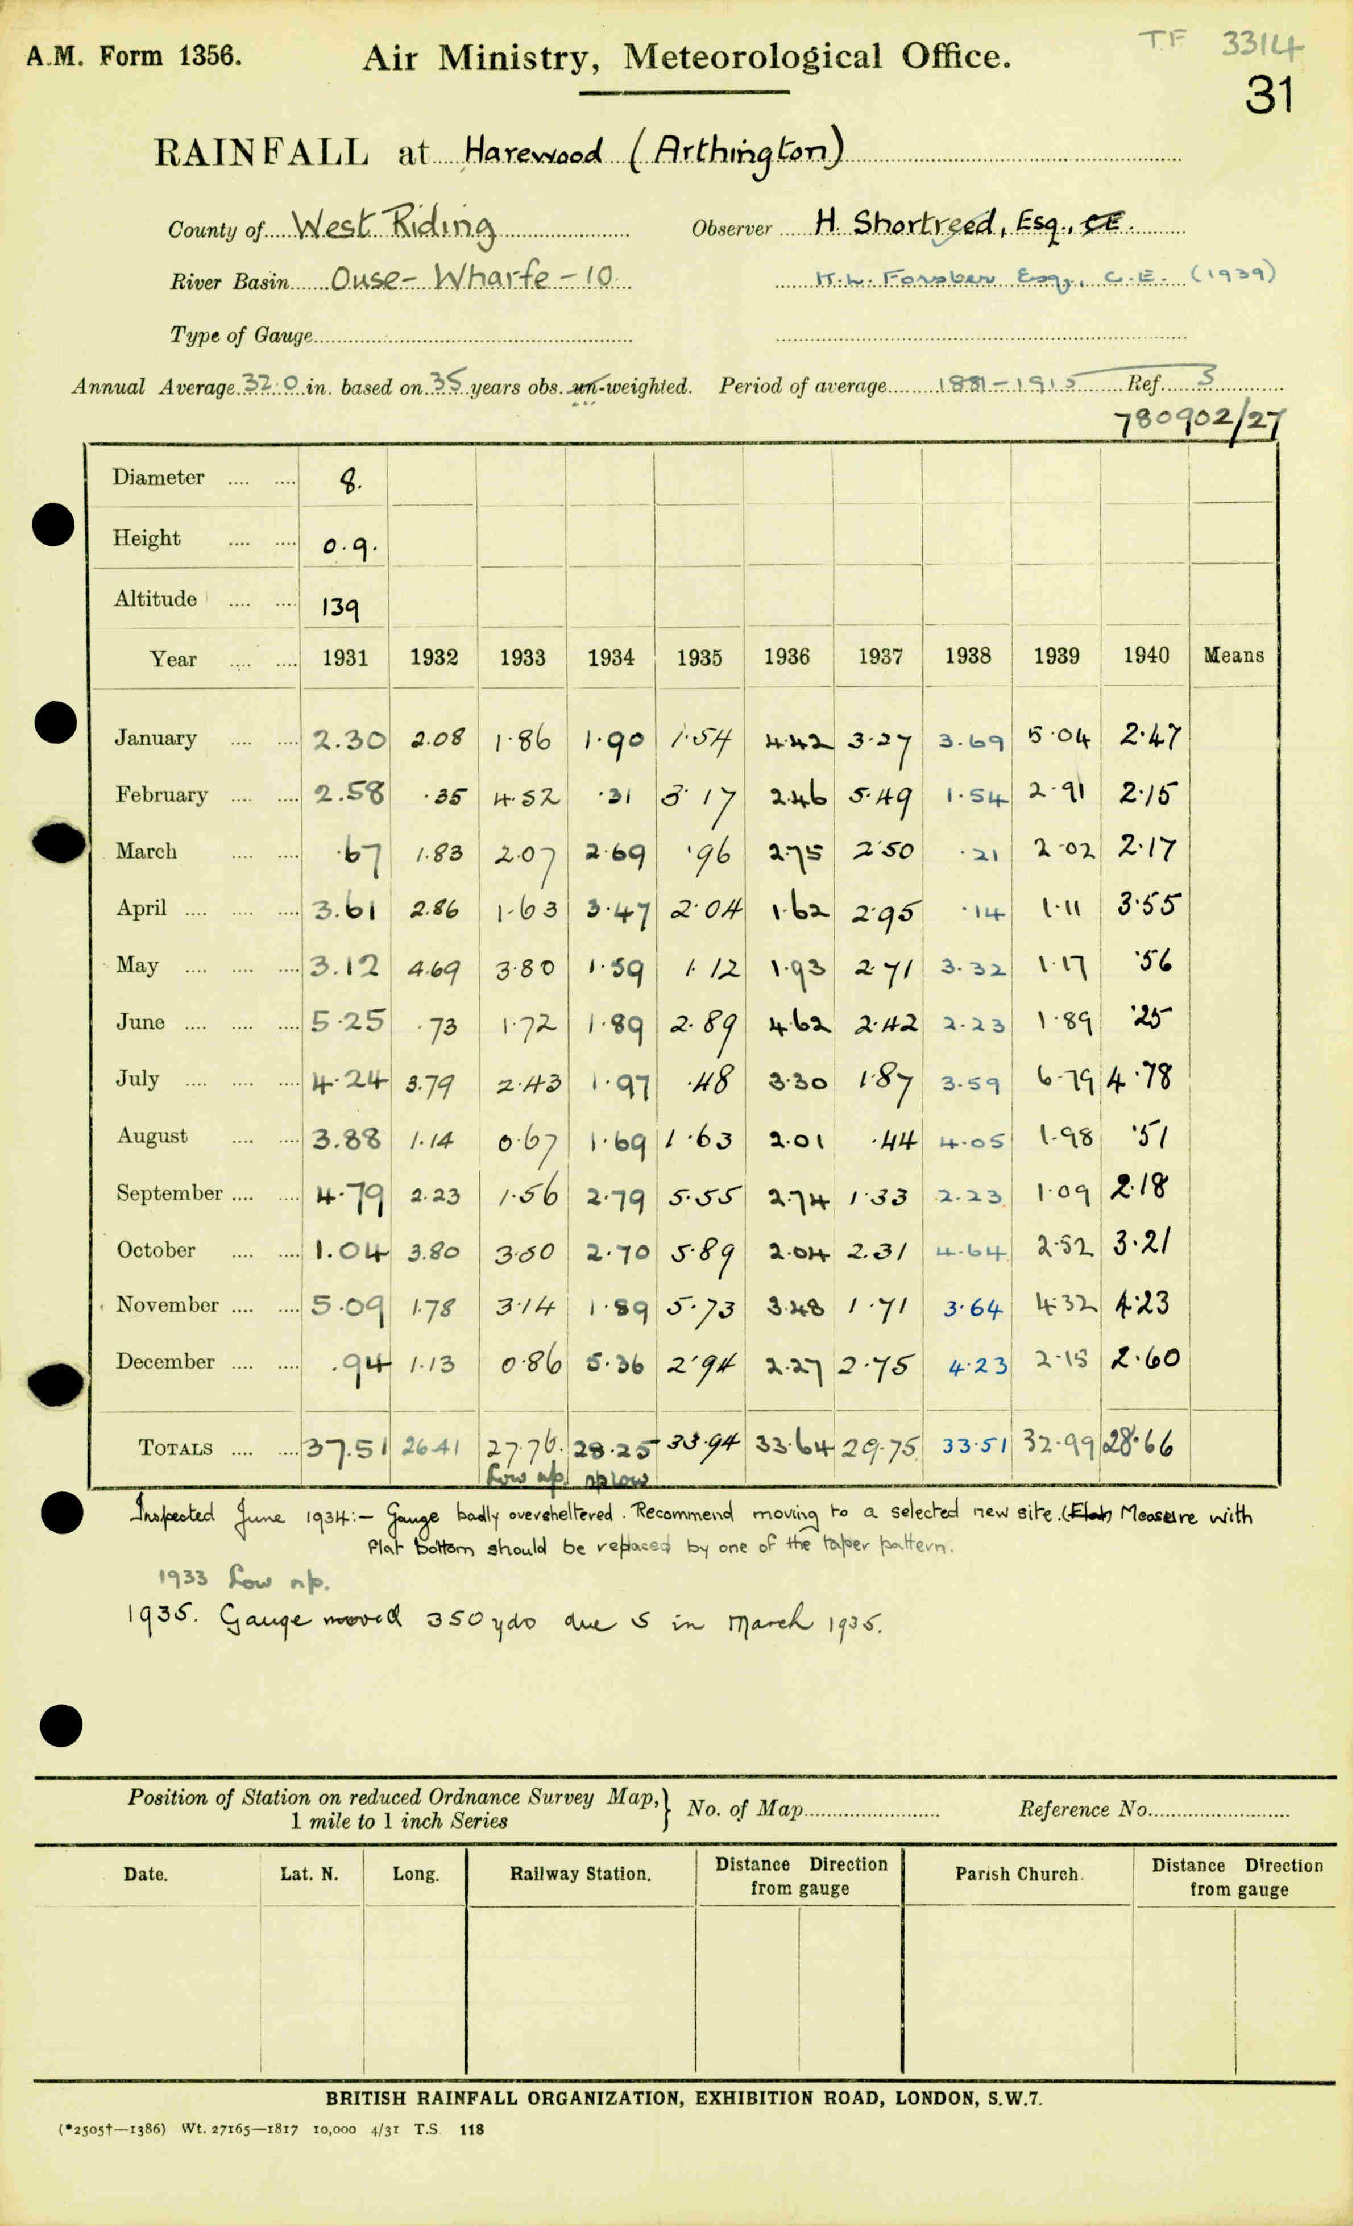 A.M. Form 1356. Air Ministry, Meteorological Office. T.F 3314
31
RAINFALL at Harewood (Arthington)
County of West Riding Observer H. Shortreed, Esq., CE.
River Basin Ouse - Wharfe - 10. Esq., C.E. (1939)
Type of Gauge
Annual Average 32.0 in. based on 35 years obs. un-weighted. Period of average 1881-1915 Ref. S
780902/27
Diameter 8.
Height 0.9.
Altitude 139
Year 1931 1932 1933 1934 1935 1936 1937 1938 1939 1940 Means
January 2.30 2.08 1.86 1.90 1.54 4.42 3.27 3.69 5.04 2.47
February 2.58 .35 4.52 .31 3.17 2.46 5.49 1.54 2.91 2.15
March .67 1.83 2.07 2.69 .96 2.75 2.50 .21 2.02 2.17
April 3.61 2.86 1.63 3.47 2.04 1.62 2.95 .14 1.11 3.55
May 3.12 4.69 3.80 1.59 1.12 1.93 2.71 3.32 1.17 .56
June 5.25 .73 1.72 1.89 2.89 4.62 2.42 2.23 1.89 .25
July 4.24 3.79 2.43 1.97 .48 3.30 1.87 3.59 6.79 4.78
August 3.88 1.14 0.67 1.69 1.63 2.01 .44 4.05 1.98 .51
September 4.79 2.23 1.56 2.79 5.55 2.74 1.33 2.23 1.09 2.18
October 1.04 3.80 3.50 2.70 5.89 2.04 2.31 4.64 2.52 3.21
November 5.09 1.78 3.14 1.89 5.73 3.48 1.71 3.64 4.32 4.23
December .94 1.13 0.86 5.36 2.94 2.27 2.75 4.23 2.15 2.60
TOTALS 37.51 26.41 27.76. 28.25 33.94 33.64 29.75 33.51 32.99 28.66
Low np. np low
Inspected June 1934:- Gauge badly oversheltered. Recommend moving to a selected new site. (Flat) Measure with
flat bottom should be replaced by one of the taper pattern.
1933 Low np.
1935. Gauge moved 350 yds due S in March 1935.
Position of Station on reduced Ordnance Survey Map,} No. of Map Reference No.
1 mile to 1 inch Series
Date. Lat. N. Long. Railway Station. Distance Direction from gauge Parish Church. Distance Direction from gauge
BRITISH RAINFALL ORGANIZATION, EXHIBITION ROAD, LONDON, S.W.7.
(*2505†—1386) Wt. 27165—1817 10,000 4/31 T.S. 118